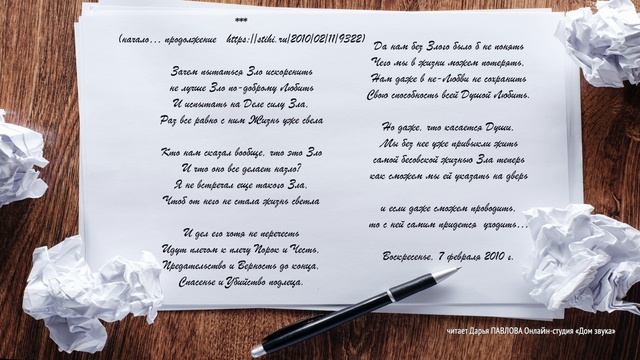 ***
(начало... продолжение https://stihi.ru/2010/02/11/9322)
Зачем пытаться Зло искоренить
не лучше Зло по-доброму Любить
И испытать на Деле силу Зла,
Раз все равно с ним Жизнь уже свела
Кто нам сказал вообще, что это Зло
И что оно все делает назло?
Я не встречал еще такого Зла,
Чтоб от него не стала жизнь светла
И дел его хотя не перечесть
Идут плечом к плечу Порок и Честь,
Предательство и Верность до конца,
Спасенье и Убийство подлеца.
Да нам без Злого было б не понять
Чего мы в жизни можем потерять,
Нам даже в не-Любви не сохранить
Свою способность всей Душой Любить.
Но даже, что касается Души,
Мы без нее уже привыкли жить
самой бесовской жизнью Зла теперь
как сможем мы ей указать на дверь
и если даже сможем проводить,
то с ней самим придется уходить...
Воскресенье, 7 февраля 2010 г.
читает Дарья ПАВЛОВА Онлайн-студия «Дом звука»